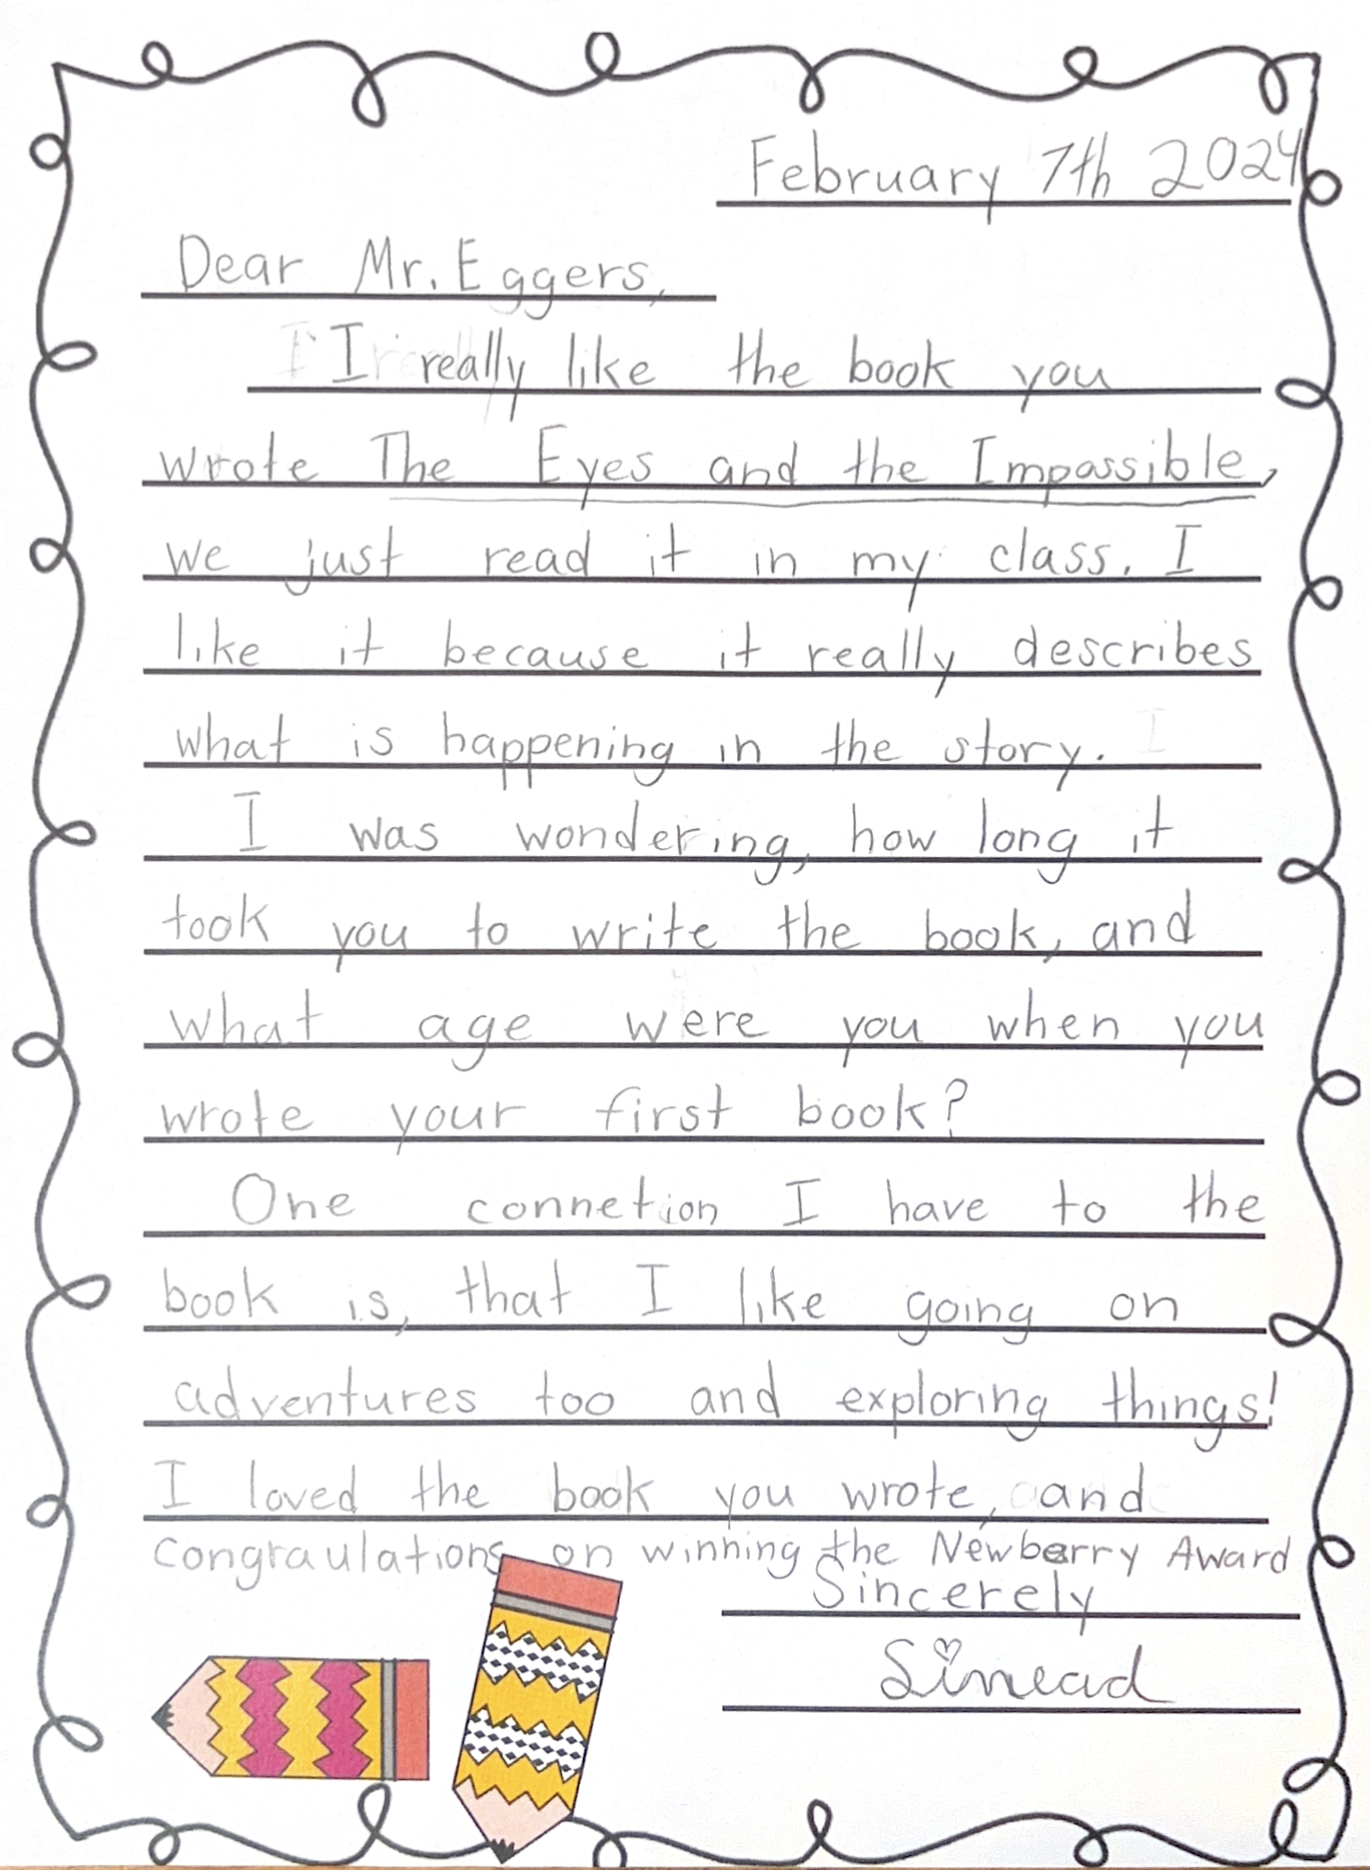 February 7th 2024
Dear Mr. Eggers,
I really like the book you
wrote The Eyes and the Impossible,
we just read it in my class. I
like it because it really describes
what is happening in the story.
I was wondering, how long it
took you to write the book, and
what age were you when you
wrote your first book?
One connetion I have to the
book is, that I like going on
adventures too and exploring things!
I loved the book you wrote, and
congraulations on winning the Newberry Award
Sincerely
Sinead